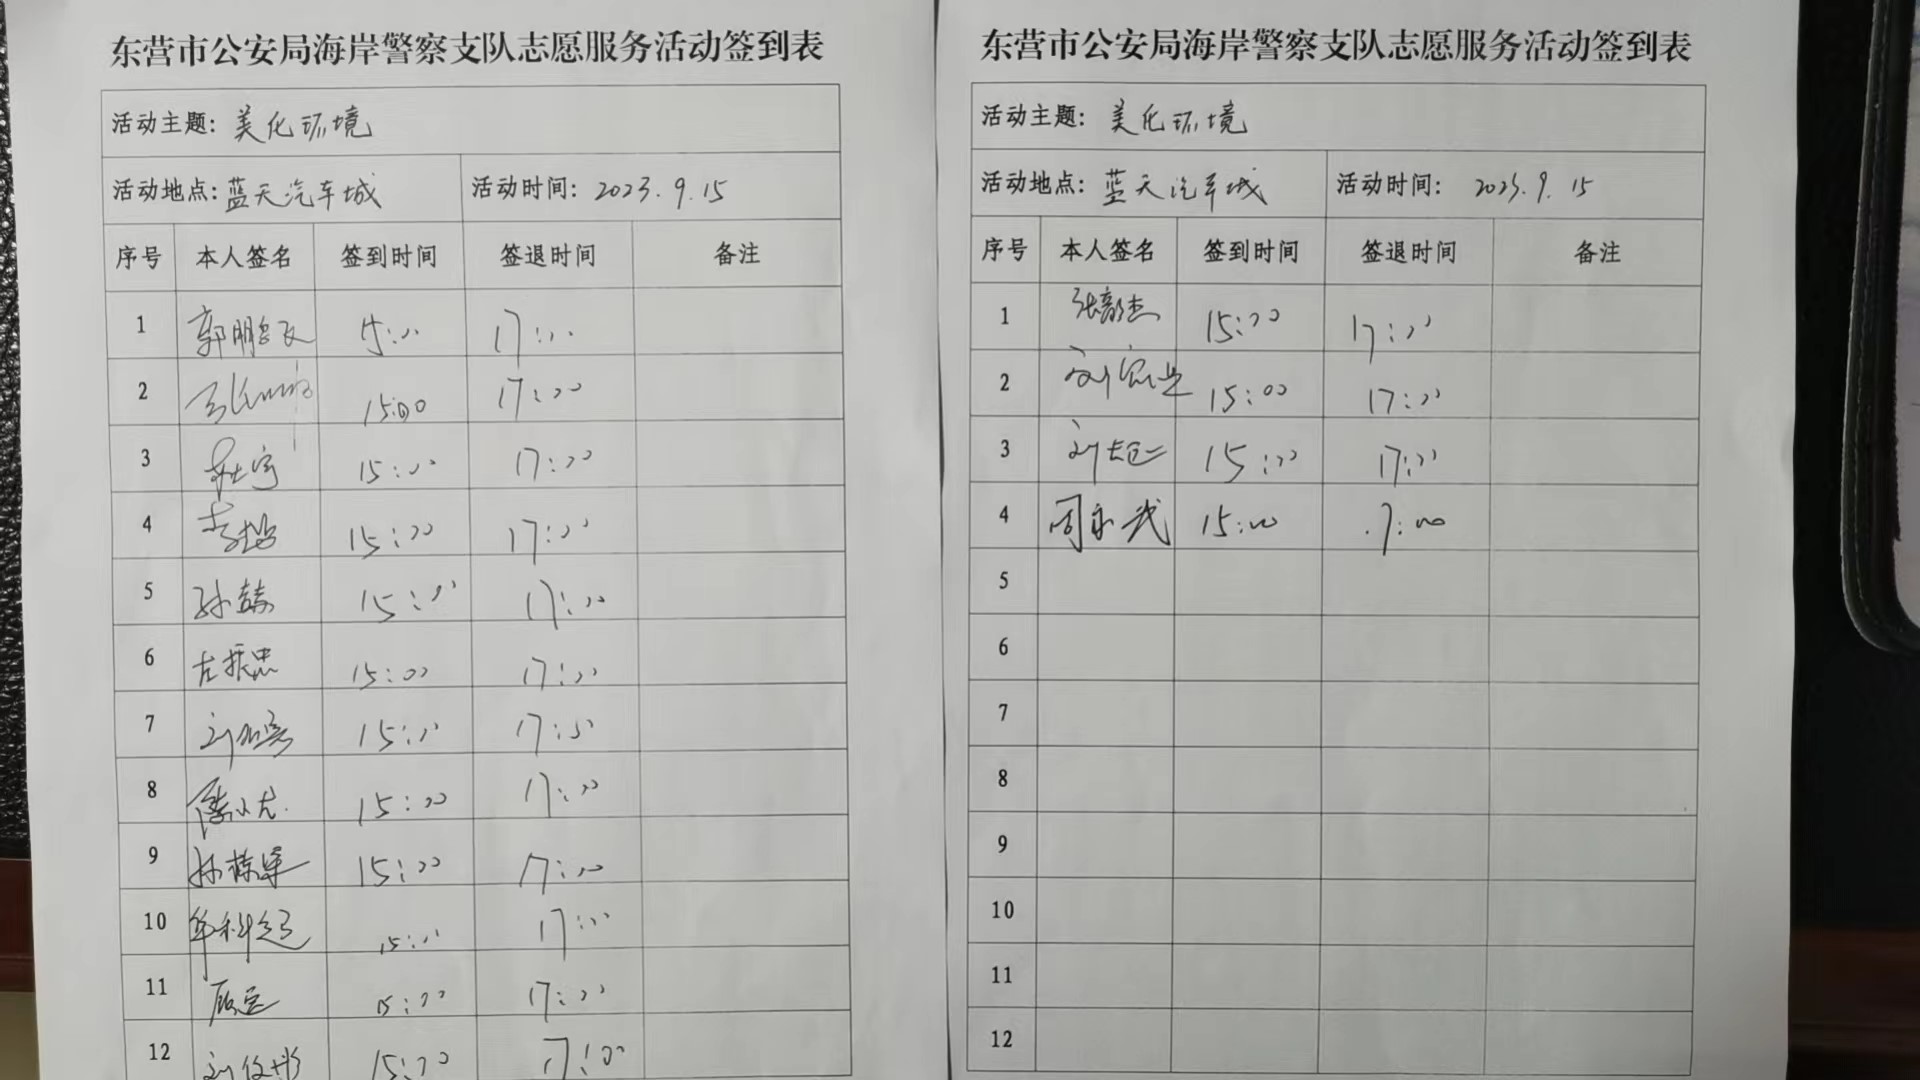 东营市公安局海岸警察支队志愿服务活动签到表
活动主题: 美化环境
活动地点: 蓝天汽车城 活动时间: 2023.9.15
序号 本人签名 签到时间 签退时间 备注
1 郭鹏飞 15:00 17:00
2 15:00 17:00
3 杜宇 15:00 17:00
4 李 15:00 17:00
5 孙 15:00 17:00
6 左振忠 15:00 17:00
7 刘 15:00 17:00
8 15:00 17:00
9 孙栋军 15:00 17:00
10 牟科超 15:00 17:00
11 15:00 17:00
12 刘俊彤 15:00 17:00
东营市公安局海岸警察支队志愿服务活动签到表
活动主题: 美化环境
活动地点: 蓝天汽车城 活动时间: 2023.9.15
序号 本人签名 签到时间 签退时间 备注
1 张 杰 15:00 17:00
2 刘 15:00 17:00
3 刘 15:00 17:00
4 周永武 15:00 17:00
5
6
7
8
9
10
11
12